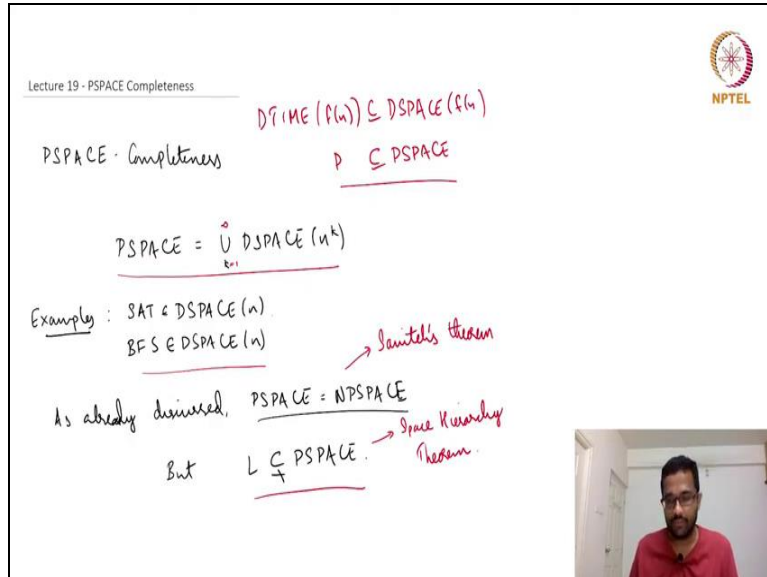 Lecture 19 - PSPACE Completeness
NPTEL
DTIME (f(n)) ⊆ DSPACE (f(n)
PSPACE - Completeness
P ⊆ PSPACE
PSPACE = ∞ ∪ k=1 DSPACE (n^k)
Examples : SAT ∈ DSPACE (n)
BFS ∈ DSPACE (n)
→ Savitch's theorem
As already discussed, PSPACE = NPSPACE
But L ⊊ PSPACE. → Space Hierarchy
Theorem.